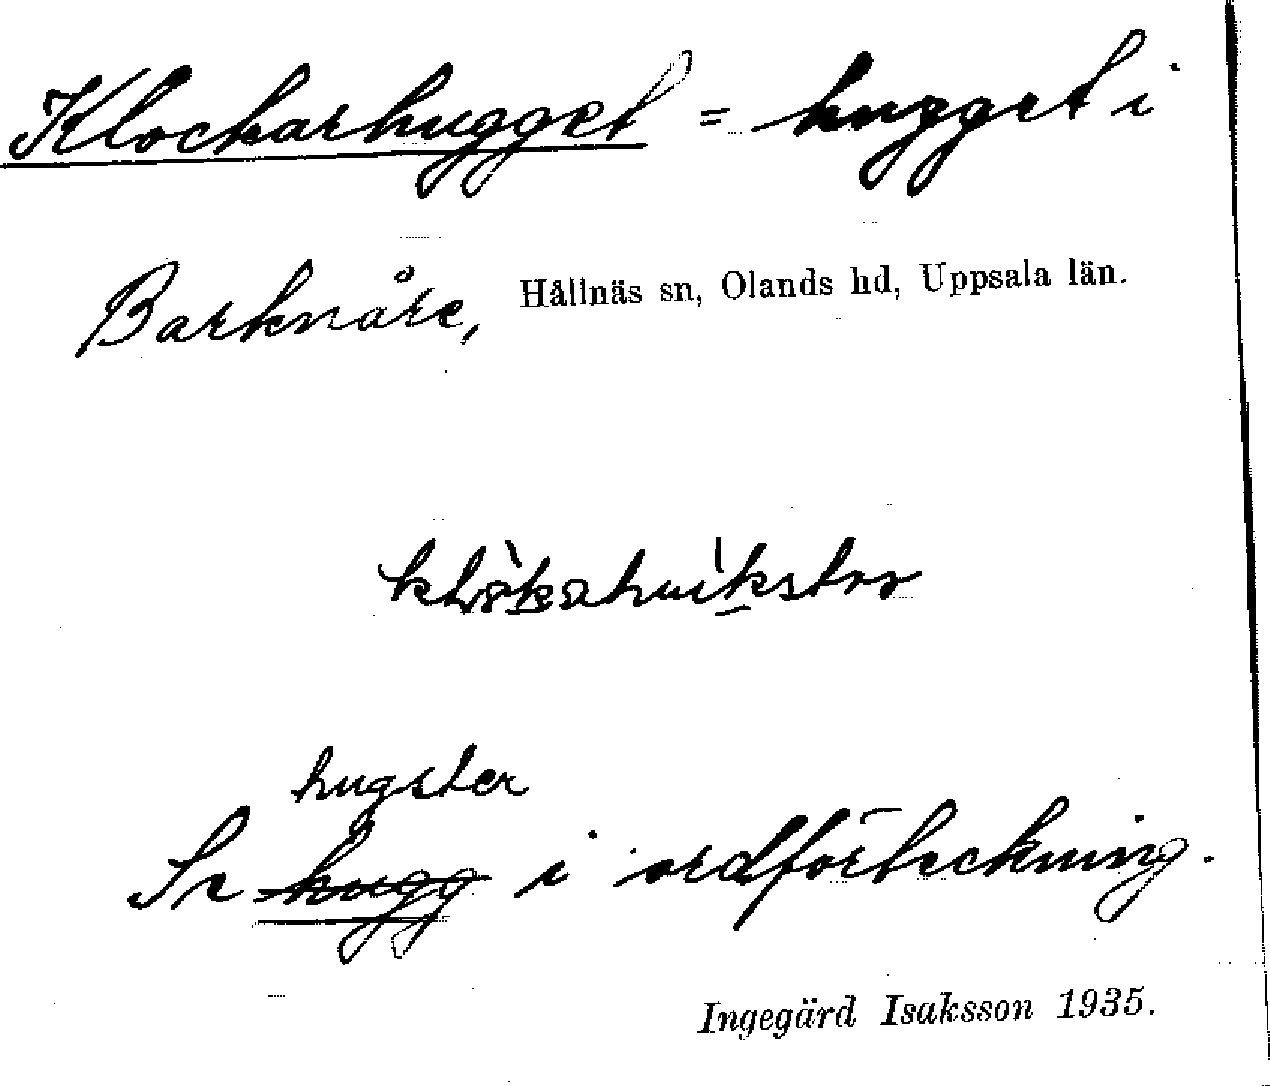 Klockarhugget = hugget i
Barknåre, Hållnäs sn, Olands hd, Uppsala län.
hugster
Se hugg i ordförteckning.
Ingegärd Isaksson 1935.